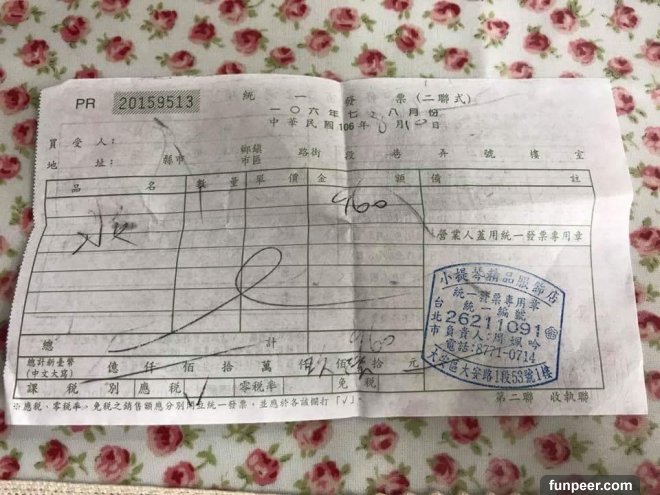 PR 20159513
統一發票(二聯式)
一〇六年七、八月份
中華民國106年8月10日
買受人:
地址: 縣市 鄉鎮市區 路街 段 巷 弄 號 樓 室
品名 數量 單價 金額 備註
960
營業人蓋用統一發票專用章
小提琴精品服飾店
統一發票專用章
統一編號
台北市
26211091
負責人:周姵吟
電話:8771-0714
大安區大安路1段53號1樓
總計 960
總計新臺幣
(中文大寫) 億 仟 佰 拾 萬 仟 佰 拾 元
課稅別 應稅 √ 零稅率 免稅
※應稅、零稅率、免稅之銷售額應分別開立統一發票,並應於各該欄打「√」。
第二聯 收執聯
funpeer.com